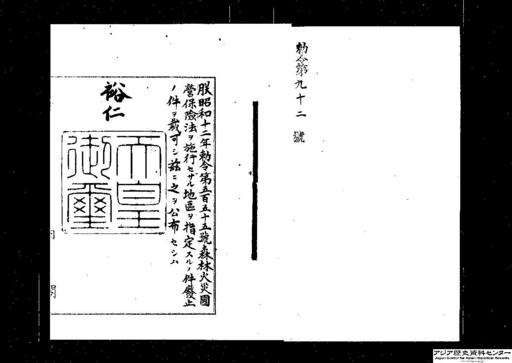 勅令第九十二號
朕昭和十二年勅令第五百五十五號森林火災國
營保險法ヲ施行セザル地區ヲ指定スルノ件廢止
ノ件ヲ裁可シ茲ニ之ヲ公布セシム
裕仁
天皇御璽
内
閣
アジア歴史資料センター
Japan Center for Asian Historical Records